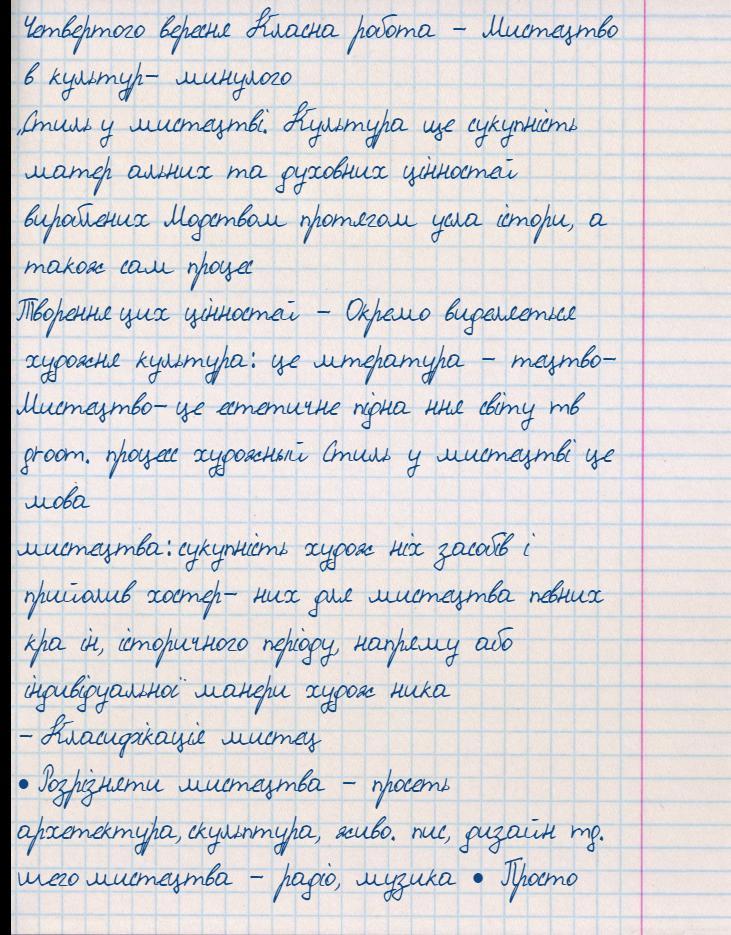 Четвертого вересня Класна робота – Мистецтво
в культур– минулого
„Стиль у мистецтві. Культура ще сукупність
матер альних та духовних цінностей
вироблених Модством протягом усла істори, а
також сам процес
Творення цих цінностей – Окремо виделяеться
художня культура: це мтература – тецтво–
Мистецтво– це естетичне підна ння світу тв
groom. процес художный Стиль у мистецтві це
мова
мистецтва: сукупність худож ніх засобів і
прийолив хостер– них для мистецтва певних
кра ін, історичного періоду, напряму або
індивідуальної манери худож ника
– Класифікація мистец
• Розрізняти мистецтва – просеть
архетектура, скульптура, живо. пис, дизайн тд.
шего мистецтва – радіо, музика • Просто